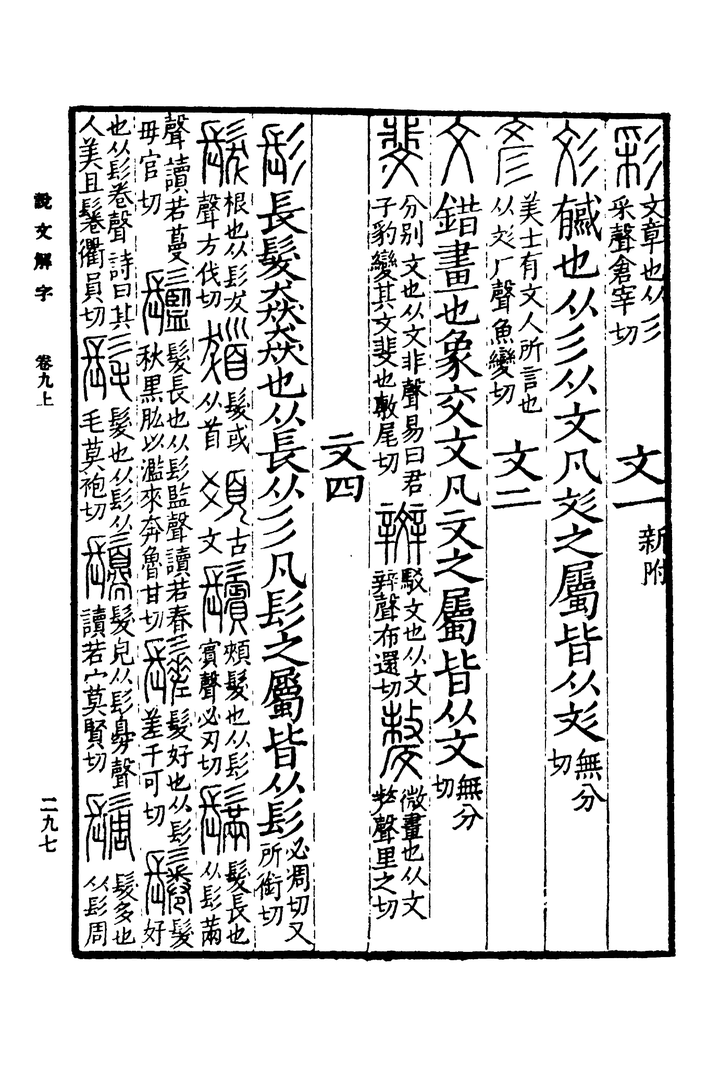 彩文章也从彡采聲倉宰切 文一新附
彣㦽也从彡从文凡彣之屬皆从彣無分切
彥美士有文人所言也从彣厂聲魚變切 文二
文錯畫也象交文凡文之屬皆从文無分切
斐分别文也从文非聲易曰君子豹變其文斐也敷尾切 辬駁文也从文辡聲布還切 微畫也从文𠩺聲里之切
文四
髟長髮猋猋也从長从彡凡髟之屬皆从髟必凋切又所銜切
髮根也从髟犮聲方伐切 髮或从首 古文 鬢頰髮也从髟賓聲必刃切 鬗髮長也从髟㒼
聲讀若蔓母官切 䰐髮長也从髟監聲讀若春秋黑肱以濫來奔魯甘切 髮好也从髟差千可切 鬈髮好
也从髟卷聲詩曰其人美且鬈衢員切 髦髮也从髟从毛莫袍切 髮皃从髟聲讀若宀莫賢切 髮多也从髟周
說文解字 卷九上 二九七